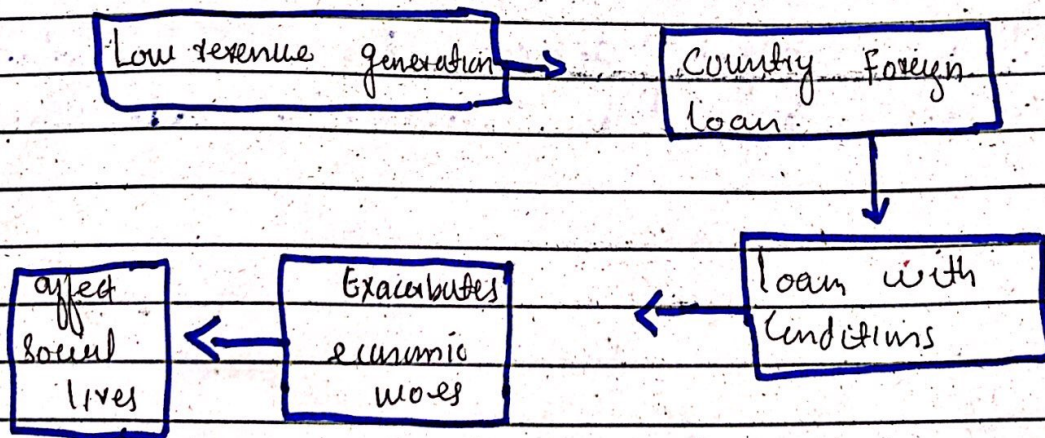 Low revenue generation
Country Foreign
loan.
loan with
Conditions
Exacerbates
economic
woes
affect
social
lives